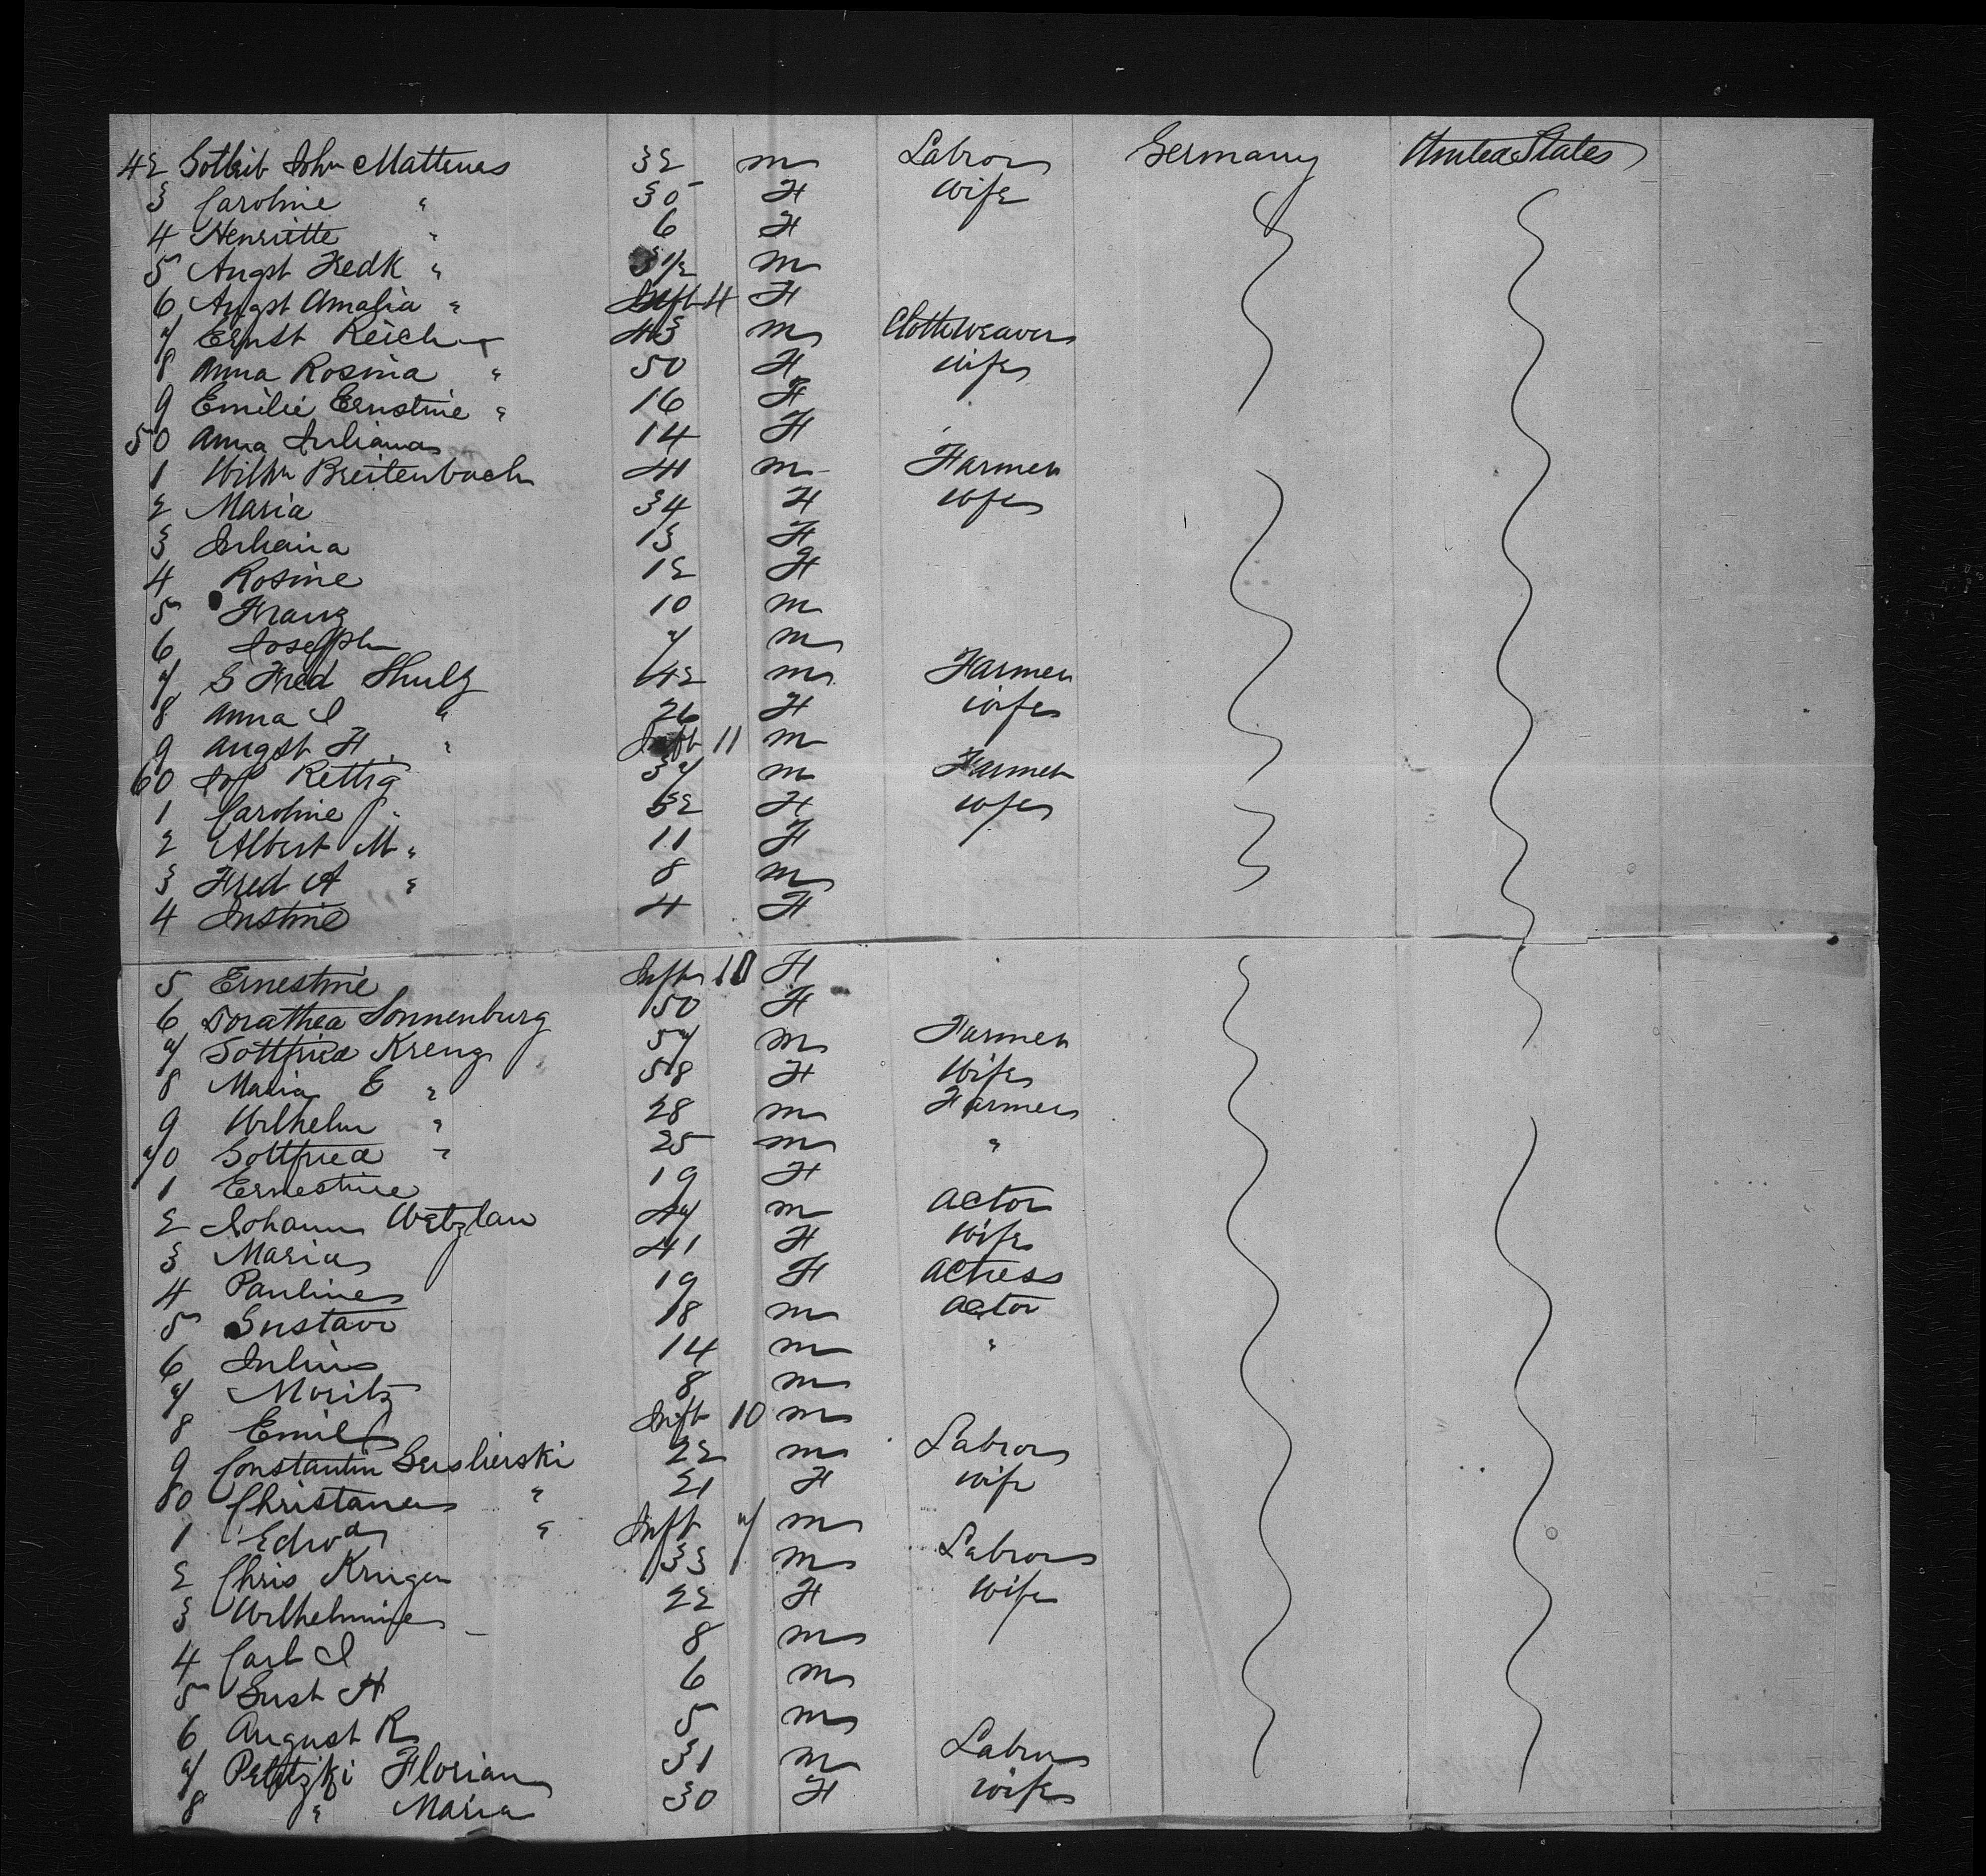 42 Gotleib John Matteus 32 m Labror Germany United States
3 Caroline " 30 F wife
4 Henriette " 6 F
5 Augst Fredk " 3 1/2 m
6 Augst Amalia " Inft 4 F
7 Ernst Reich 43 m Clothweaver
8 Anna Rosina " 50 F wife
9 Emilie Ernstine " 16 F
50 Anna Juliana 14 F
1 Wilhm Breitenbach 41 m Farmer
2 Maria 34 F wife
3 Juliana 13 F
4 Rosine 12 F
5 Franz 10 m
6 Joseph 7 m
7 G Fred Shulz 42 m Farmer
8 Anna I " 26 F wife
9 Augst F " Inft 11 m
60 Jos Rettig 37 m Farmer
1 Caroline " 32 F wife
2 Albert M " 11 F
3 Fred A " 8 m
4 Justine 4 F
5 Ernestine Inft 10 F
6 Dorathea Sonnenburg 50 F
7 Gottfried Krenz 57 m Farmer
8 Maria E " 58 F Wife
9 Wilhelm " 28 m Farmer
70 Gottfried " 25 m "
1 Ernestine 19 F
2 Johann Wetzlau 47 m Actor
3 Maria 41 F Wife
4 Pauline 19 F Actress
5 Gustave 18 m Actor
6 Julius 14 m "
7 Moritz 8 m
8 Emil Inft 10 m
9 Constantin 22 m Labror
80 Christana " 21 F wife
1 Edwd " Inft 7 m
2 Chris Kruger 33 m Labror
3 Wilhelmine 22 F Wife
4 Carl I 8 m
5 Gust A 6 m
6 August R 5 m
7 Florian 31 m Labror
8 " Maria 30 F wife